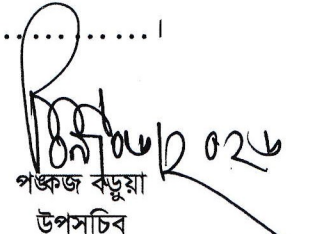 ..............।
পঙ্কজ বড়ুয়া
উপসচিব